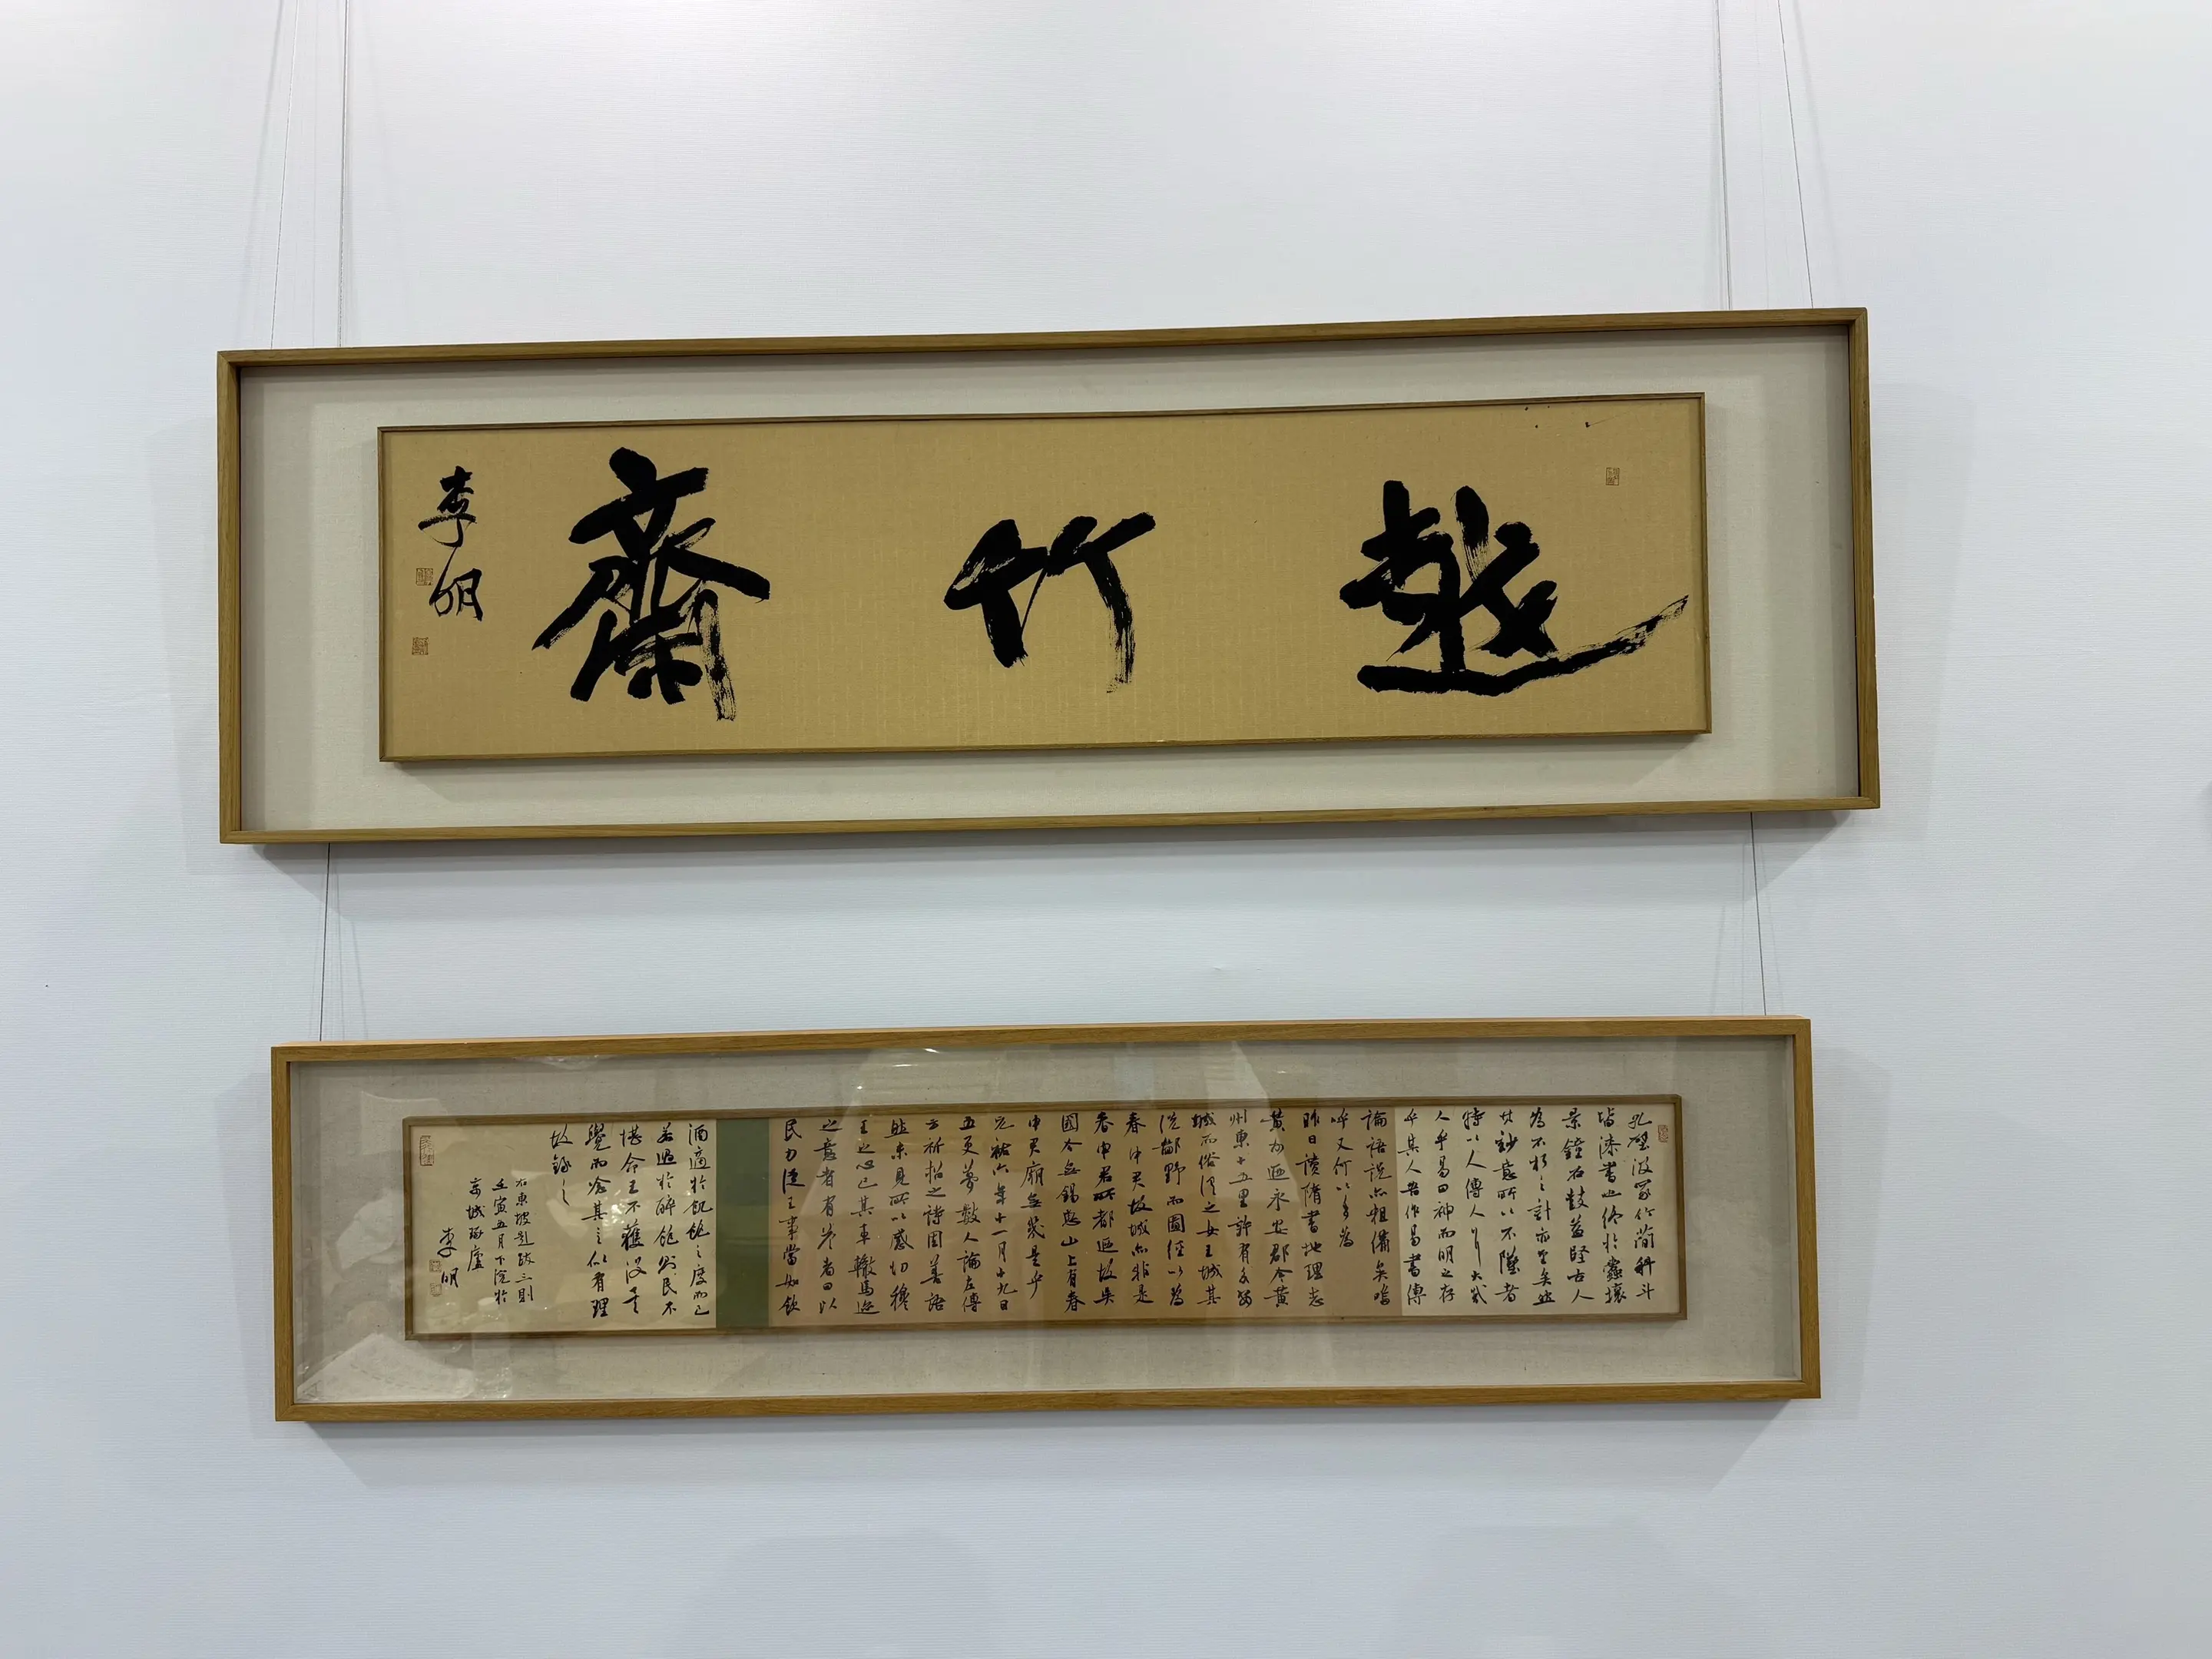 竹齋
李明
孔壁汲冢竹簡科斗
皆漆書也終於蠹壞
景鐘石鼓蓋堅古人
為不朽之計亦至矣然
其妙意所以不墜者
特以人傳人耳大哉
人乎易曰神而明之存
乎其人吾作易書傳
論語說亦粗備矣嗚
呼又何以多為
昨日讀隋書地理志
黃州迺永安郡今黃
州東十五里許有永安
城而俗謂之女王城其
說鄙野而圖經以為
春申君故城亦非是
春申君所都迺故吳
國今無錫惠山上有春
申君廟無幾是乎
元祐六年十一月十九日
五更夢數人論左傳
云祈招之詩固善語
然未見所以感切穆
王之心已其車轍馬迹
之意者有答者曰以
民力從王事當如飲
酒適於飢飽之度而已
若過於醉飽則民不
堪命王不獲沒矣
覺而念其言似有理
故錄之
右東坡題跋三則
壬寅五月下浣於
城琢廬
李明